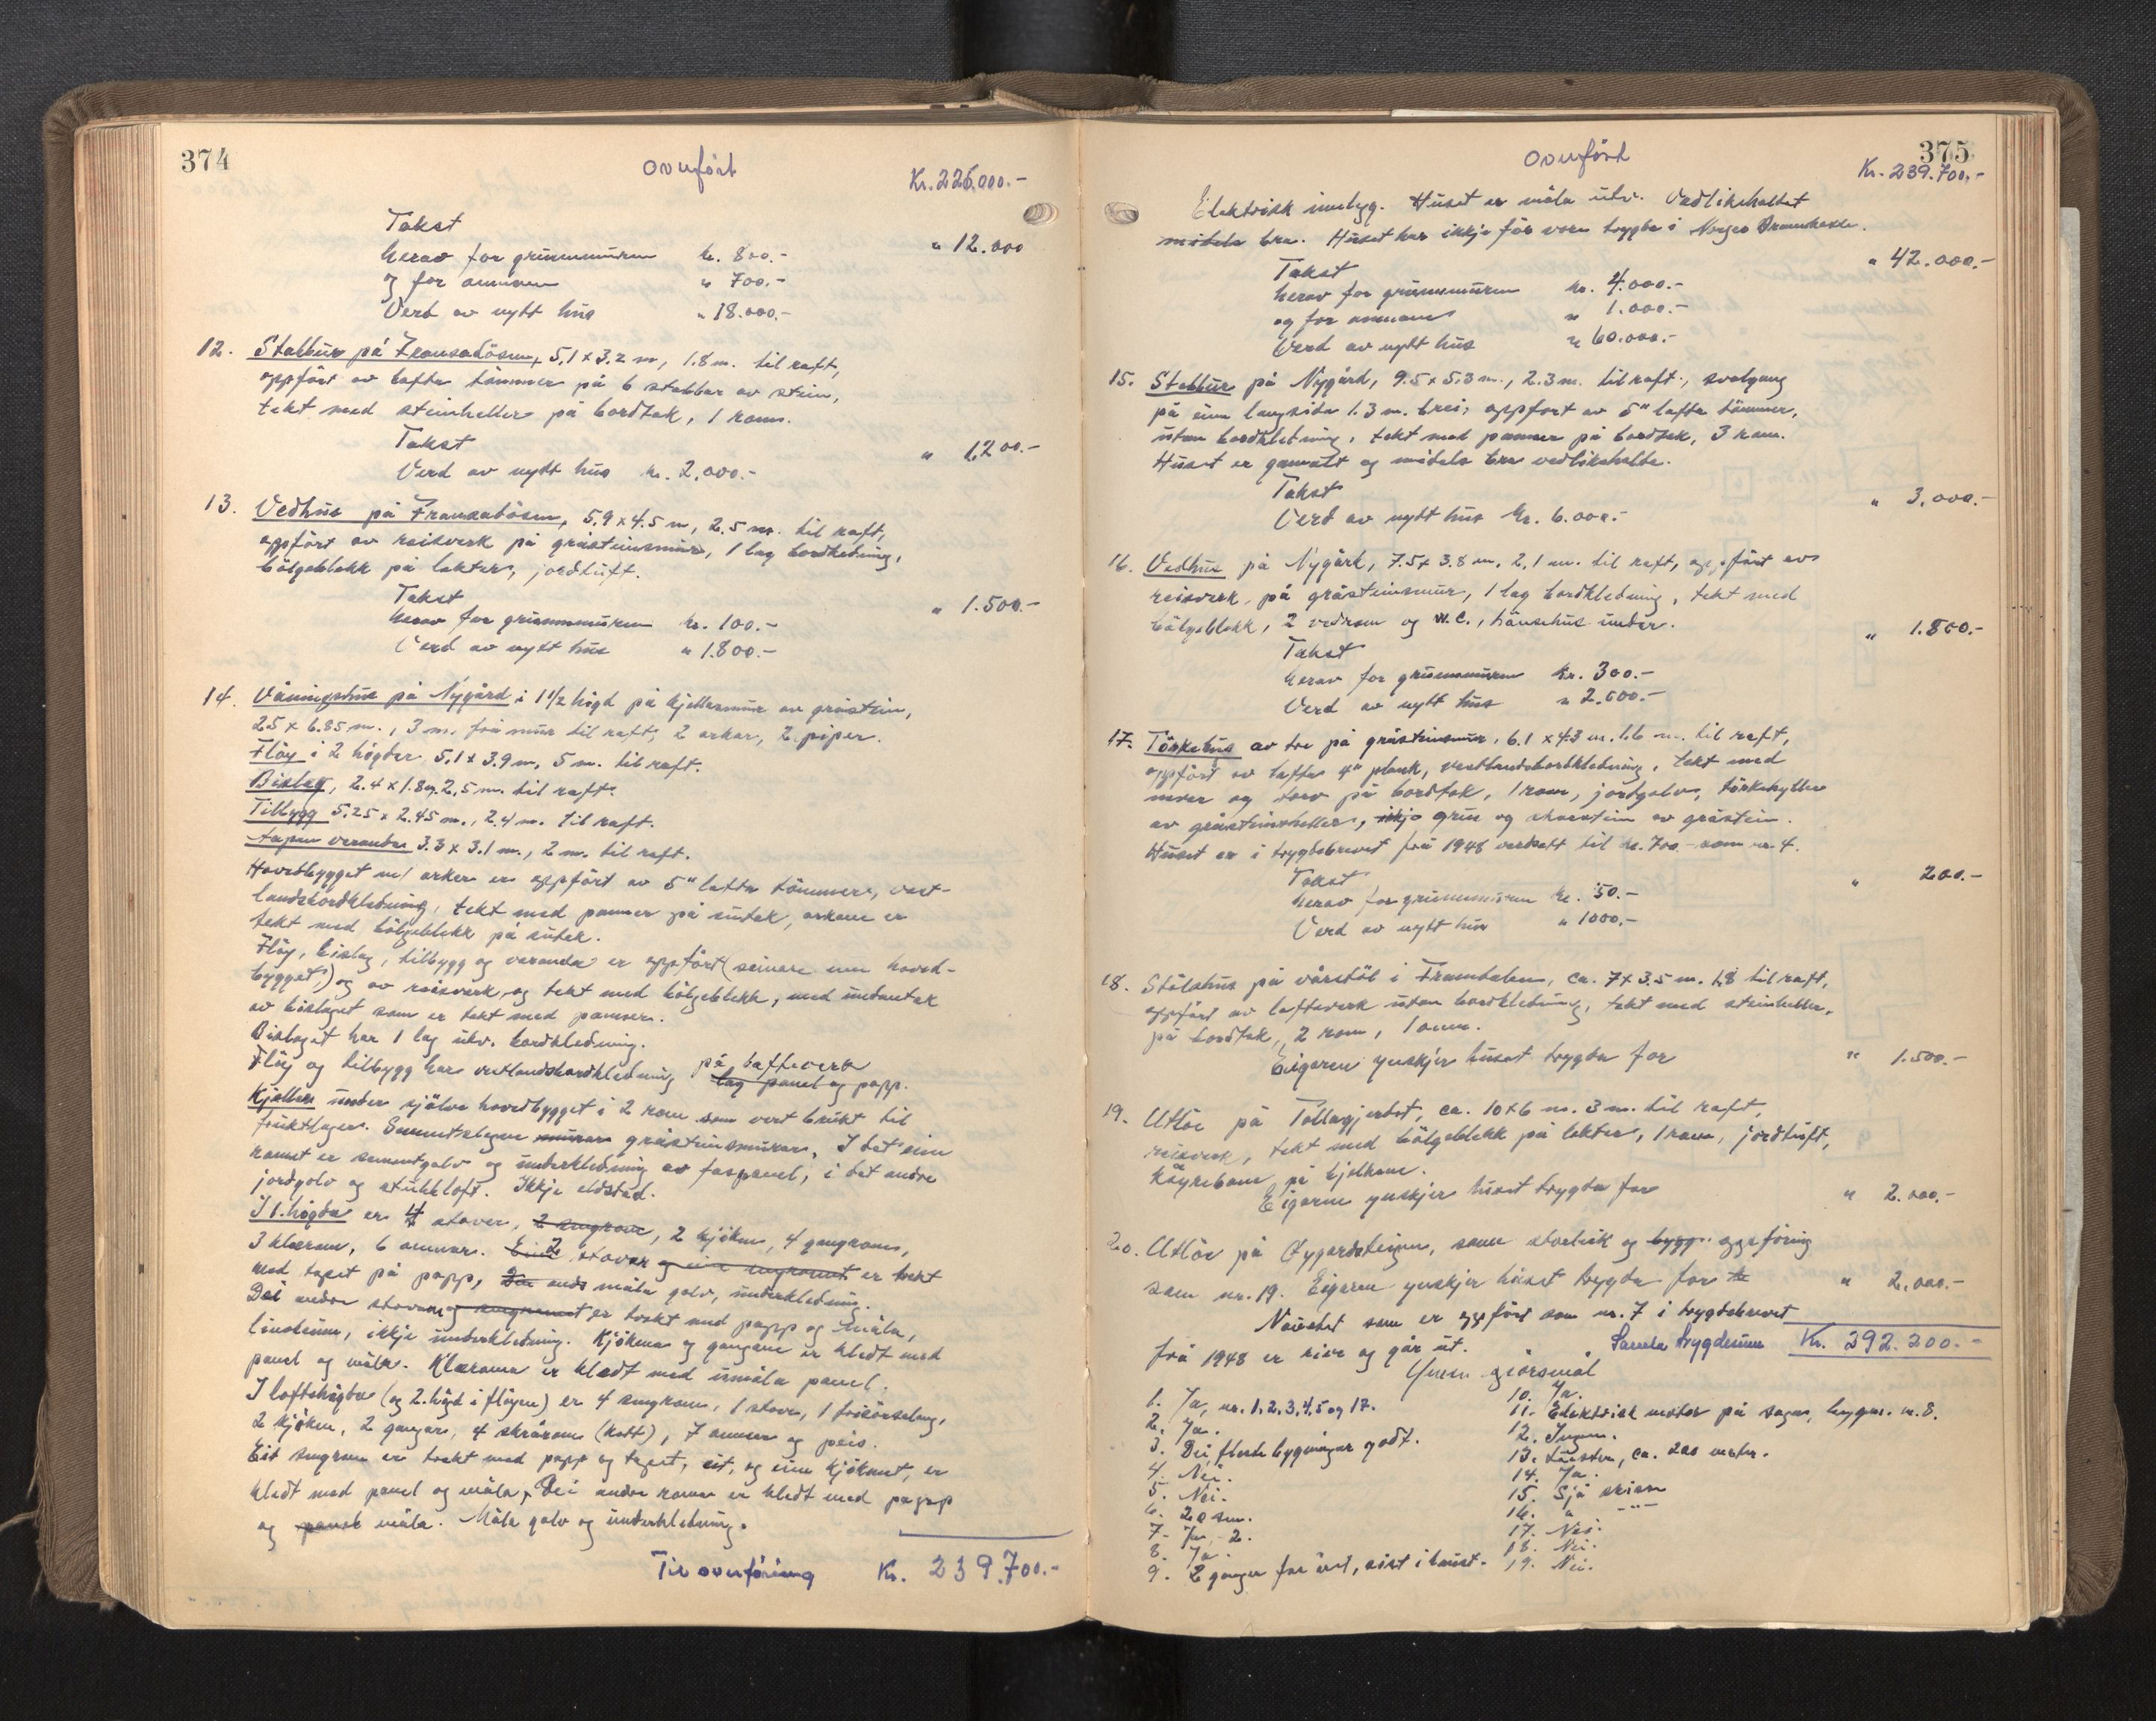 374
Overført
Kr. 225.000.-
Takst " 12.000
herav for grunnmuren kr. 800.-
og for omnen " 700.-
Verd av nytt hus " 18.000.-
12. Stabbur på Fransabösen, 5,1 x 3,2 m, 1.8 m. til raft,
oppfört av lafta tömmer på 6 stabbar av stein,
tekt med steinheller på bordtak, 1 rom.
Takst " 1,200.-
Verd av nytt hus kr. 2,000.-
13. Vedhus på Fransabösen, 5,9 x 4.5 m, 2.5 m. til raft,
oppfört av reisverk på gråsteinsmur, 1 lag bordkledning,
bölgeblekk på lekter, jordtuft.
Takst " 1.500.-
herav for grunnmuren kr. 100.-
Verd av nytt hus " 1.800.-
14. Våningshus på Nygård i 1 1/2 högd på kjellarmur av gråstein,
25 x 6.85 m., 3 m. frå mur til raft, 2 arkar, 2 piper.
Flöy i 2 högder 5,1 x 3.9 m, 5 m. til raft.
Bislag, 2.4 x 1.8 og 2,5 m. til raft.
Tilbygg 5,25 x 2.45 m., 2.4 m. til raft.
Aapen veranda 3.3 x 3.1 m., 2 m. til raft.
Hovedbygget m/ arker er oppfört av 5" lafta tömmer, vest-
landsbordkledning, tekt med panner på sutak, arkane er
tekt med bölgeblekk på sutak.
Flöy, bislag, tilbygg og veranda er oppfört (seinare enn hoved-
bygget) og av reisverk, og tekt med bölgeblekk, med undantak
av bislaget som er tekt med panner.
Bislaget har 1 lag utv. bordkledning.
Flöy og tilbygg har vestlandsbordkledning på lafteverk lag panel og papp.
Kjellar under sjölve hovedbygget i 2 rom som vert brukt til
fruktlager. Sementslegne murar gråsteinsmurar. I det eine
romet er sementgolv og underkledning av faspanel, i det andre
jordgolv og stubbloft. Ikkje eldstad.
I 1. högda er 4 stover, 2 sengrom, 2 kjöken, 4 gangrom,
3 klærom, 6 omnar. Eine 2 stover og ein sengromet er trekt
med tapet på papp, Den ands måla golv, underkledning.
Dei andre stovene og sengromet er trekt med papp og måla,
linoleum, ikkje underkledning. Kjökena og gangane er kledt med
panel og måla. Klæroma er kledt med umåla panel.
I loftshögda (og 2. högd i flöyen) er 4 sengrom, 1 stove, 1 frisörsalong,
2 kjöken, 2 gangar, 4 skrårom (kott), 7 omner og peis.
Eit sengrom er trekt med papp og tapet, eit, og eine kjökenet, er
kledt med panel og måla, Dei andre romа er kledt med papp
og panel måla. Måla golv og underkledning.
Til overföring Kr. 239.700.-
375
Overført
Kr. 239.700.-
Elektrisk innlegg. Huset er måla utv. Vedlikehaldet
midels bra. Huset har ikkje för vore trygda i Norges Brannkasse.
Takst " 42.000.-
herav for grunnmuren kr. 4.000.-
og for omnane " 1.000.-
Verd av nytt hus " 60.000.-
15. Stabbur på Nygård, 9.5 x 5.3 m., 2.3 m. til raft, svalgang
på eine langsida 1.3 m. brei, oppfort av 5" lafta tömmer,
utan bordkledning, tekt med panner på bordtak, 3 rom.
Huset er gamalt og midels bra vedlikehalde.
Takst " 3,000.-
Verd av nytt hus kr. 6.000.-
16. Vedhus på Nygård, 7.5 x 3.8 m, 2,1 m. til raft, oppfört av
reisverk på gråsteinsmur, 1 lag bordkledning, tekt med
bölgeblekk, 2 vedrom og W.C., hönsehus under.
Takst " 1.800.-
herav for grunnmuren kr. 300.-
Verd av nytt hus " 2.600.-
17. Törkehus av tre på gråsteinsmur, 6.1 x 4.3 m. 1.6 m. til raft,
oppfört av lafta 4" plank, vestlandsbordkledning, tekt med
never og torv på bordtak, 1 rom, jordgolv, törkehyller
av gråsteinsheller, ikkje grue og skorstein av gråstein.
Huset er i trygdebrevet frå 1948 verdsett til kr. 700.- som nr. 4.
Takst " 200.-
herav for grunnmuren kr. 50.-
Verd av nytt hus " 1000.-
18. Stölshus på vårstöl i Framdalen, ca. 7 x 3.5 m. 1,8 til raft,
oppfört av lafteverk utan bordkledning, tekt med steinheller,
på bordtak, 2 rom, 1 omn.
Eigaren ynskjer huset trygda for " 1.500.-
19. Utlöe på Tollagjerdet, ca. 10 x 6 m. 3 m. til raft,
reisverk, tekt med bölgeblekk på lekter, 1 rom, jordtuft,
köyrebane på bjelkane.
Eigaren ynskjer huset trygda for " 2.000.-
20. Utlöe på Öygardsteigen, same storleik og bygg. oppföring
som nr. 19. Eigaren ynskjer huset trygda for kr " 2.000.-
Naustet som er oppfört som nr. 7 i trygdebrevet
frå 1948 er rive og går ut. Samla trygdesum Kr. 292.200.-
Ymse giörsmål
1. Ja, nr. 1, 2, 3, 4, 5 og 17.
2. Ja.
3. Dei fleste bygningar godt.
4. Nei.
5. Nei.
6. 20 sm.
7. Ja, 2.
8. Ja.
9. 2 ganger for året, sist i haust.
10. Ja.
11. Elektrisk motor på sagen, bygn. nr. 8.
12. Ingen.
13. Luster, ca. 200 meter.
14. Ja.
15. Sjå skisse
16. " -"-
17. Nei.
18. Nei.
19. Nei.